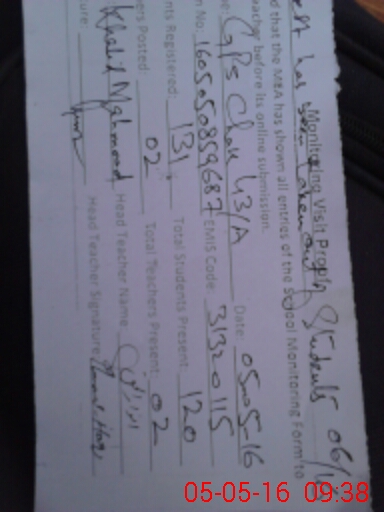 Monitoring Visit Proof
has been taken Students 06/
d that the MEA has shown all entries of the School Monitoring Form to
eacher before its online submission.
e: GPS Chak 43/A Date: 05-05-16
n No: 1605050859687 EMIS Code: 31320115
nts Registered: 131 Total Students Present: 120
hers Posted: 02 Total Teachers Present: 02
Khalid Mahmood Head Teacher Name:
ture: Head Teacher Signature:
05-05-16 09:38